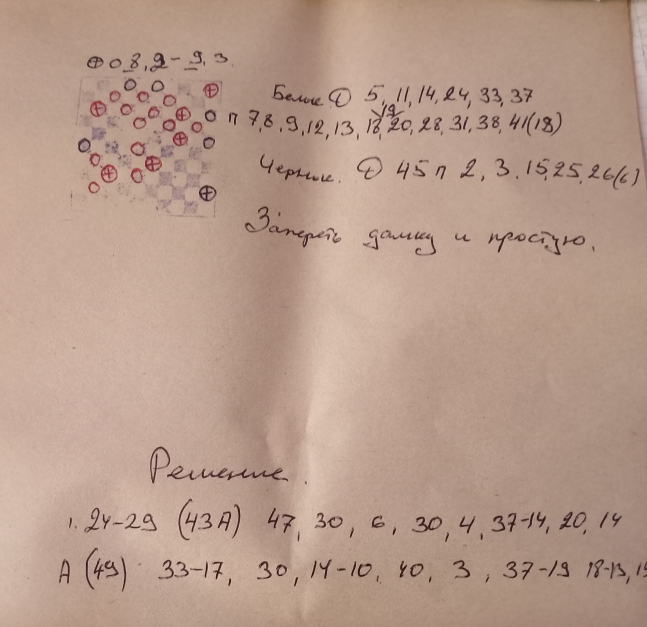 ⊕ o 8, 2 - 9, 3.
Белые Д 5, 11, 14, 24, 33, 37
п 7, 8, 9, 12, 13, 18, 19, 20, 28, 31, 38, 41 (18)
Черные. Д 45 п 2, 3, 15, 25, 26 (6)
Запереть дамку и простую.
Решение.
1. 24-29 (43А) 47, 30, 6, 30, 4, 37-14, 20, 14
А (49) 33-17, 30, 14-10, 40, 3, 37-19 18-13,